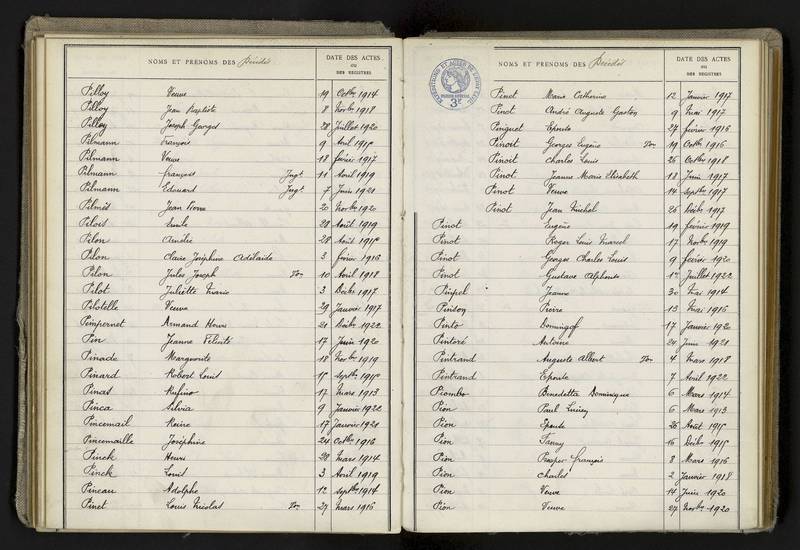 NOMS ET PRENOMS DES Décédés
DATE DES ACTES
OU
DES REGISTRES
Pilloy Veuve 19 Octbre 1914
Pilloy Jean Baptiste 8 Novbre 1918
Pilloy Joseph Georges 28 Juillet 1920
Pilmann François 9 Avril 1915
Pilmann Veuve 18 février 1917
Pilmann françois Jugt 11 Avril 1919
Pilmann Edouard Jugt 7 Juin 1921
Pilmès Jean Pierre 20 Novbre 1920
Pilois Emile 28 Août 1919
Pilon Amélie 28 Août 1915
Pilon Claire Joséphine Adélaïde 3 février 1916
Pilon Jules Joseph Ton 10 Avril 1918
Pilot Juliette Marie 3 Décbre 1917
Pilotelle Veuve 29 Janvier 1917
Pimpernet Armand Henri 21 Décbre 1922
Pin Jeanne Félicité 17 Juin 1920
Pinade Marguerite 18 Novbre 1919
Pinard Robert Louis 15 Septbre 1915
Pinas Rufino 17 Mars 1913
Pinca Silvia 9 Janvier 1922
Pincemail Reine 17 Janvier 1921
Pincemaille Joséphine 24 Octbre 1916
Pinck Henri 20 Mars 1914
Pinck Louis 3 Avril 1919
Pineau Adolphe 12 Septbre 1914
Pinet Louis Nicolas Ton 29 Mars 1916
NOMS ET PRENOMS DES Décédés
DATE DES ACTES
OU
DES REGISTRES
3F
Pinot Marie Catherine 12 Janvier 1917
Pinot André Auguste Gaston 9 Mai 1917
Pinguet Epouse 27 février 1916
Pinoit Georges Eugène Ton 19 Octbre 1916
Pinoit Charles Louis 26 Octbre 1918
Pinot Jeanne Marie Elisabeth 18 Juin 1917
Pinot Veuve 14 Septbre 1917
Pinot Jean Michel 26 Décbre 1917
Pinot Eugène 19 février 1919
Pinot Roger Louis Marcel 17 Novbre 1919
Pinot Georges Charles Louis 9 février 1920
Pinot Gustave Alphonse 1er Juillet 1922
Pinpel Jeanne 30 Mai 1914
Pinson Pierre 13 Mai 1916
Pinto Domingos 17 Janvier 1920
Pintoré Antoine 24 Juin 1921
Pintrand Auguste Albert Ton 4 Mars 1918
Pintrand Epouse 7 Avril 1922
Piombo Benedetta Dominique 6 Mars 1914
Pion Paul Lucien 6 Mars 1913
Pion Epouse 26 Août 1915
Pion Fanny 16 Décbre 1915
Pion Prosper françois 8 Mars 1916
Pion Charles 2 Janvier 1918
Pion Veuve 14 Juin 1920
Pion Veuve 27 Novbre 1920